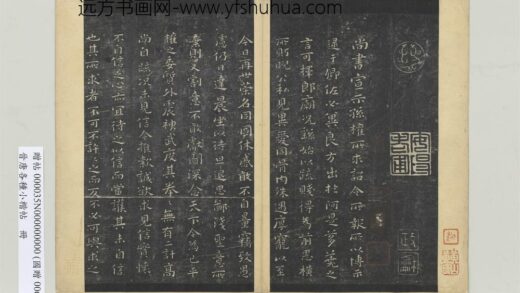 远方书画网-www.yfshuhua.com
尚書宣示孫權所求詔令所報所以博示
逮于卿佐必冀良方出於阿是芻蕘之
言可擇郎廟況繇始以疏賤得為前恩橫
所盻睨公私見異愛同骨肉殊遇厚寵以至
今日再世榮名同國休慼敢不自量竊致愚
慮仍日達晨坐以待旦退思鄙淺聖意所
棄則又割意不敢獻聞深念天下今為已平
權之委質外震神武度其拳拳無有二計高
尚自疏況未見信今推款誠欲求見信實懷
不自信之心亦宜待之以信而當護其未自信
也其所求者不可不許許之而反不必可與求之
贈帖 000035N000000000 (國贈 00
晉唐各種小楷帖 冊